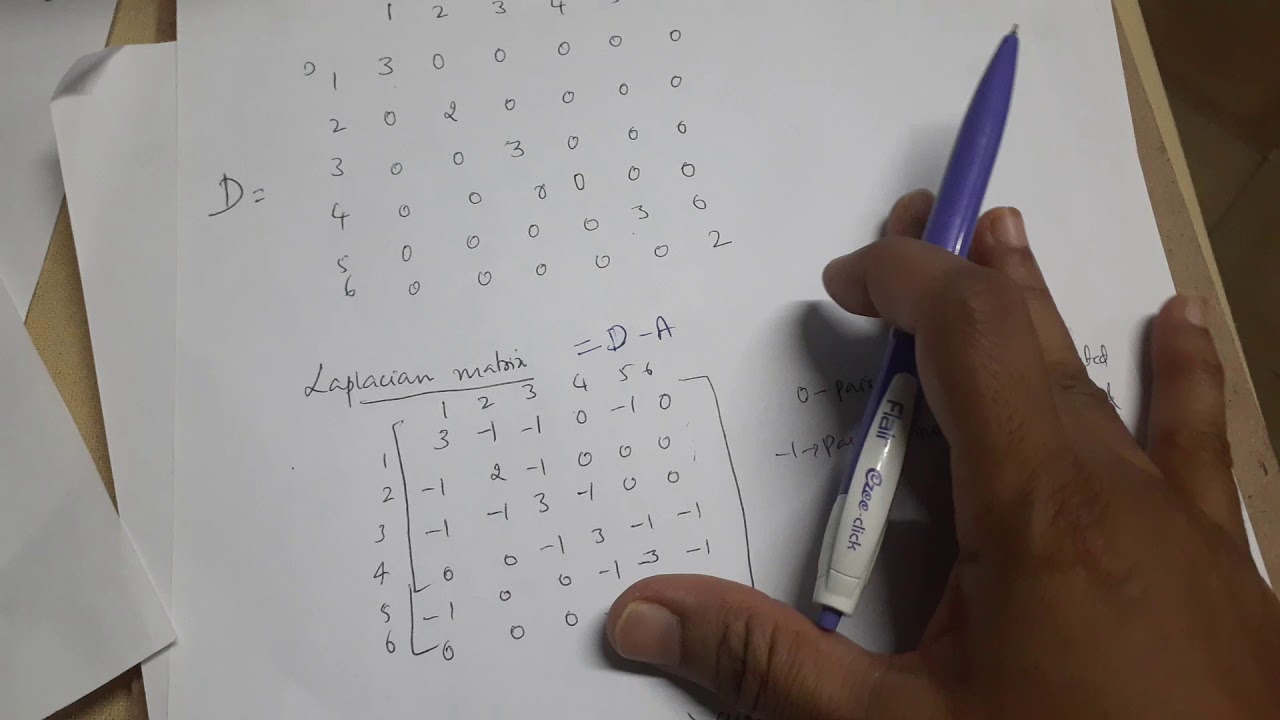 1 2 3 4
1 3 0 0 0 0 0
2 0 2 0 0 0 0
3 0 0 3 0 0 0
D=
4 0 0 0 0 0
5 0 0 0 0 3 0
6 0 0 0 0 0 2
Laplacian matrix = D-A
1 2 3 4 5 6
1 3 -1 -1 0 -1 0
2 -1 2 -1 0 0 0
3 -1 -1 3 -1 0 0
4 0 0 -1 3 -1 -1
5 -1 0 0 -1 3 -1
6 0 0 0
0-pai
-1→Pa
Flair Ezee-click